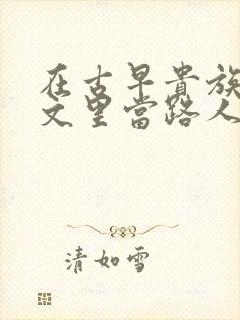 在古早貴族
文里當路人
清如雪